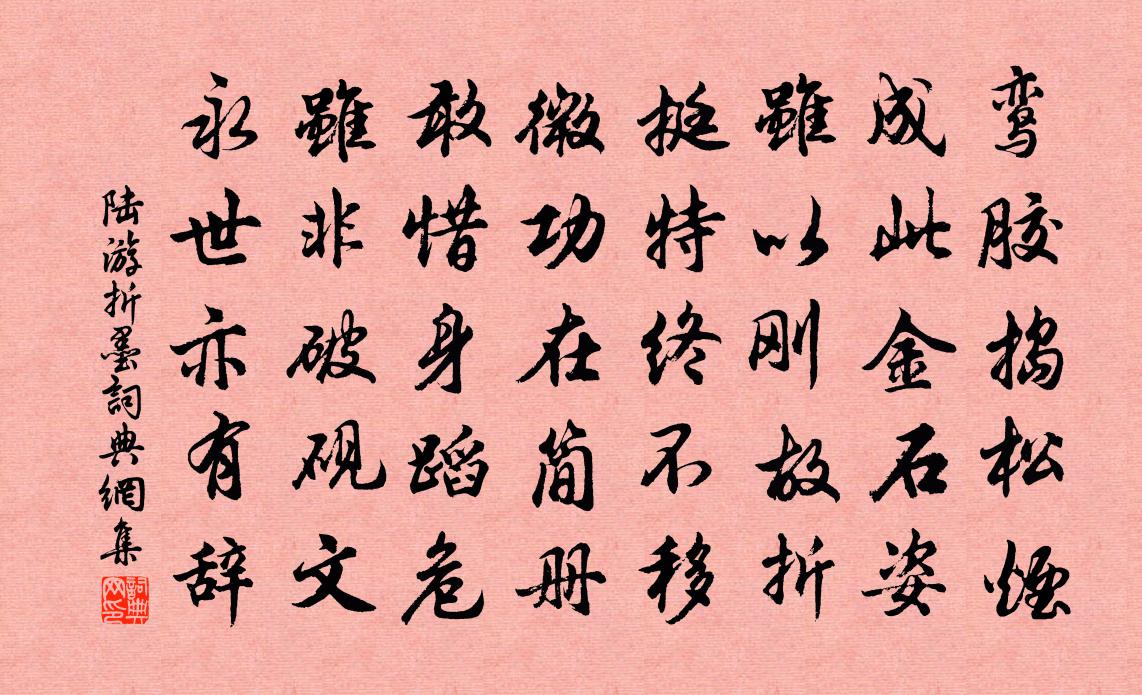 鸾胶捣松煙
成此金石姿
雖以刚故折
挺特终不移
微功在简册
敢惜身蹈危
雖非破砚文
永世亦有辞
陆游折墨詞典網集
詞典网印